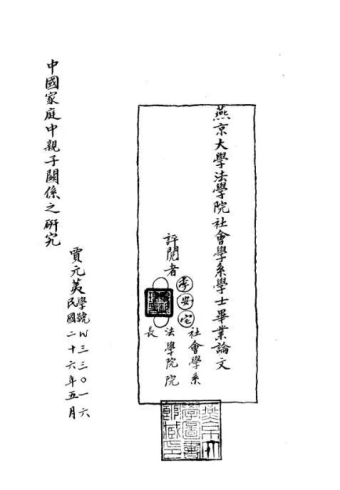 燕京大學法學院社會學系學士畢業論文
評閱者
李安宅
社會學系
法學院院長
中國家庭中親子關係之研究
賈元英學號W三三〇一六
民國二十六年五月